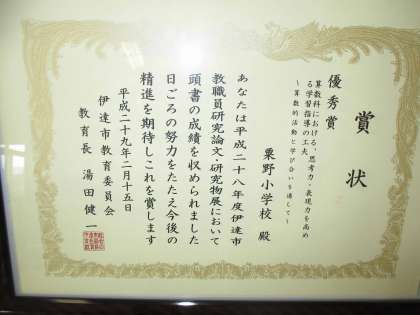 賞状
優秀賞
算数科における、思考力・表現力を高め
る学習指導の工夫
～算数的活動と学び合いを通して～
粟野小学校 殿
あなたは平成二十八年度伊達市
教職員研究論文・研究物展において
頭書の成績を収められました
日ごろの努力をたたえ今後の
精進を期待しこれを賞します
平成二十九年二月十五日
伊達市教育委員会
教育長 湯田健一